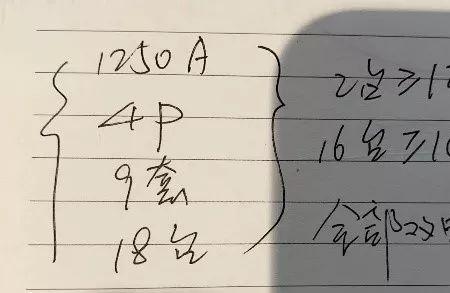 1250A
4P
9套
18台
2台≥12
16台≥10
全部改